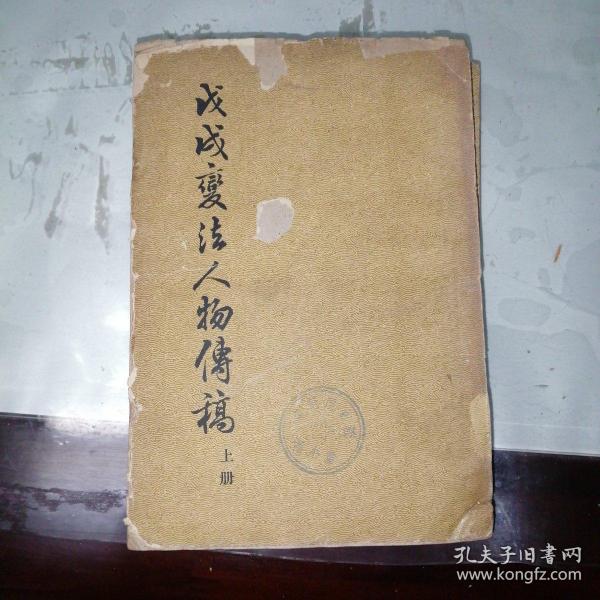 戊戌變法人物傳稿
上册
孔夫子旧書网
www.kongfz.com